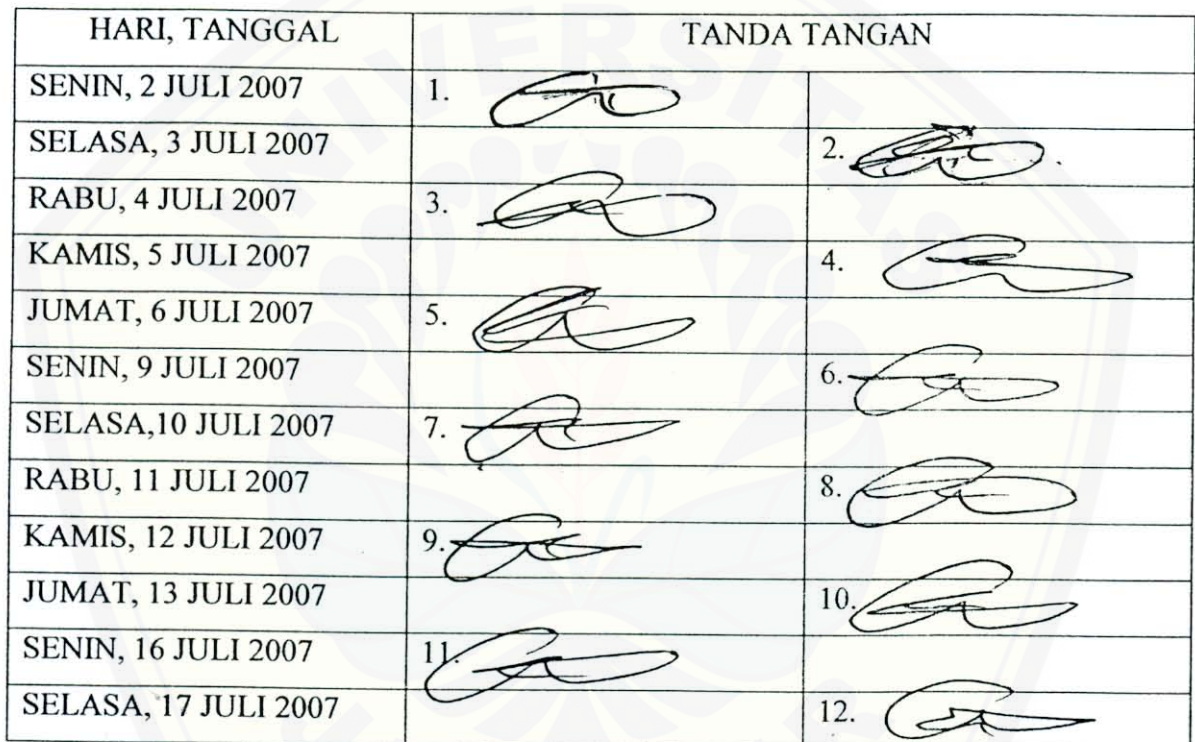 HARI, TANGGAL TANDA TANGAN
SENIN, 2 JULI 2007 1.
SELASA, 3 JULI 2007 2.
RABU, 4 JULI 2007 3.
KAMIS, 5 JULI 2007 4.
JUMAT, 6 JULI 2007 5.
SENIN, 9 JULI 2007 6.
SELASA,10 JULI 2007 7.
RABU, 11 JULI 2007 8.
KAMIS, 12 JULI 2007 9.
JUMAT, 13 JULI 2007 10.
SENIN, 16 JULI 2007 11.
SELASA, 17 JULI 2007 12.
UNIVERSITAS